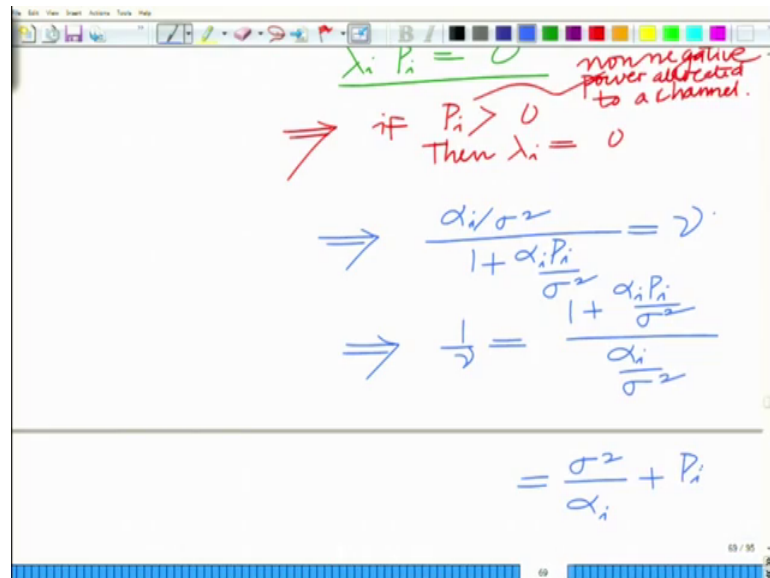 File Edit View Insert Actions Tools Help
λi Pi = 0
nonnegative
power allocated
to a channel.
⇒ if Pi > 0
Then λi = 0
⇒ (αi/σ²) / (1 + αiPi/σ²) = ν
⇒ 1/ν = (1 + αiPi/σ²) / (αi/σ²)
= σ²/αi + Pi
69 / 95
69